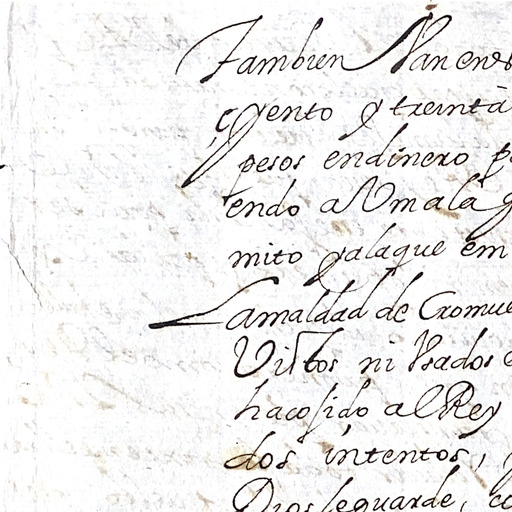 Tambien Van en es
çyento y treinta
pesos en dinero p
endo a Vmala
mito y ala que em
La maldad de Cromue
Vistos ni Vsados
ha cosido al Rey
dos intentos,
Dios le guarde, co